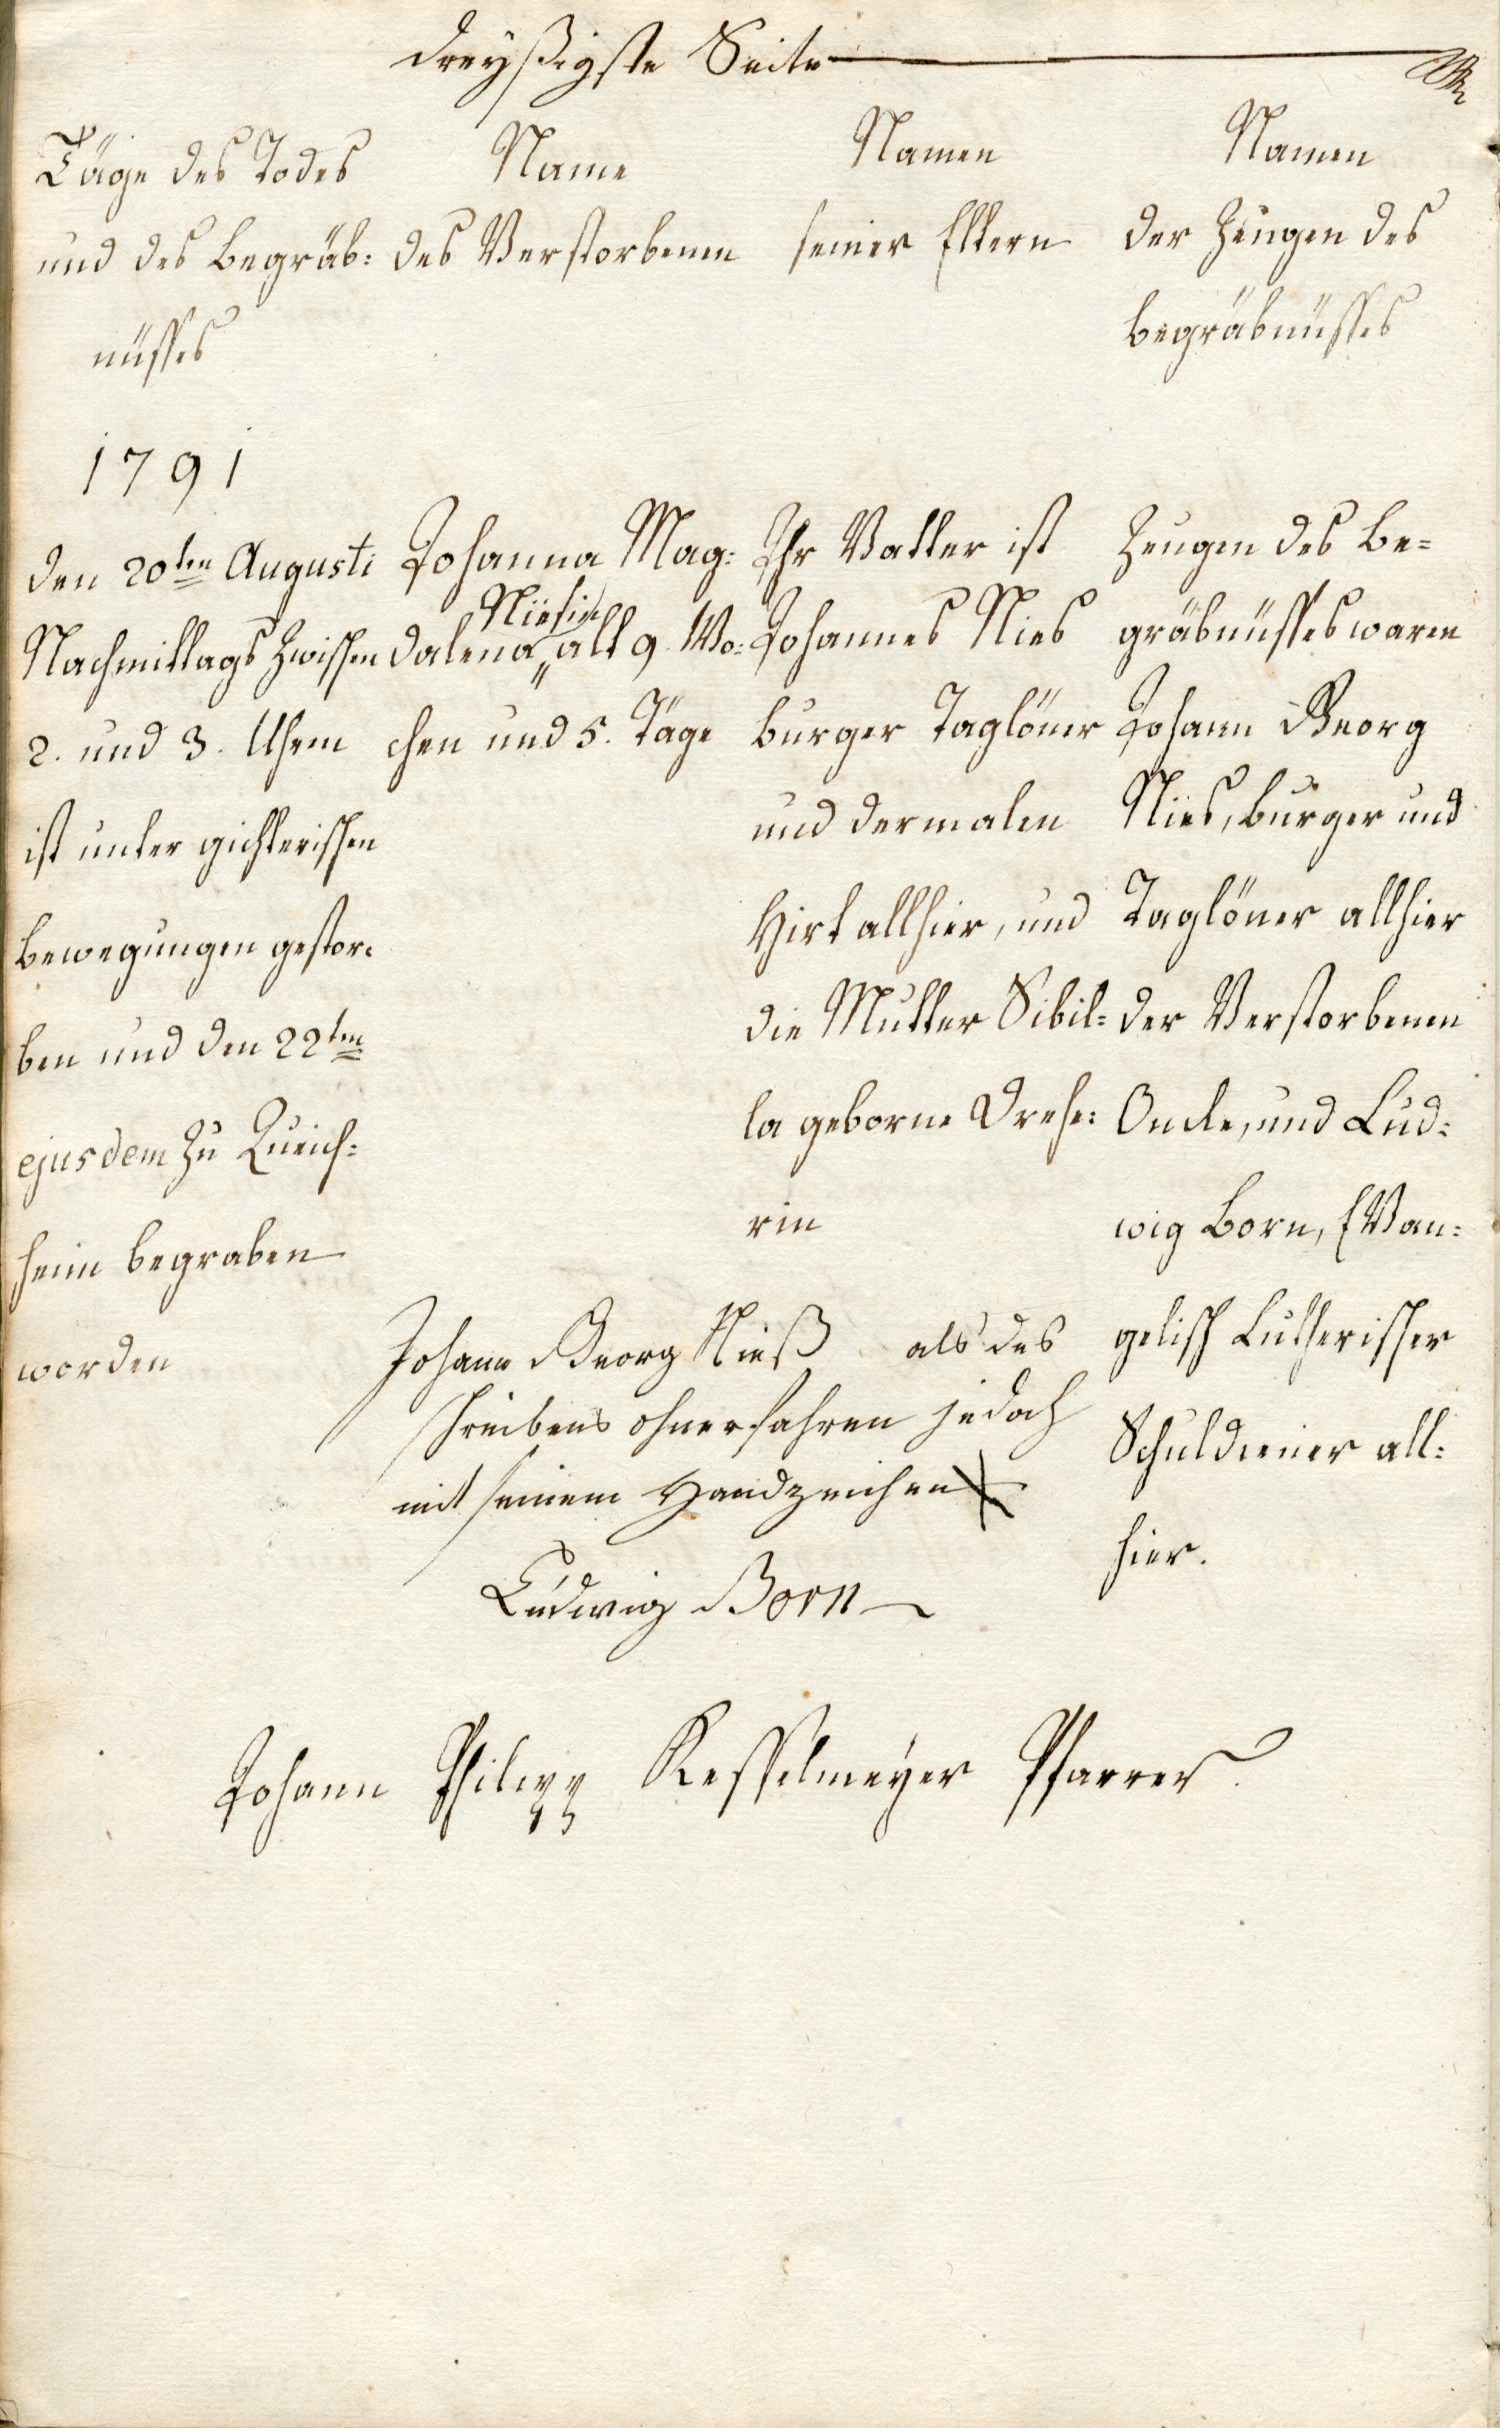 dreyßigste Seite
Täge des Todes
und des Begräb:
nüßes
Name
des Verstorbenen
Namen
seiner Eltern
Namen
der Zeugen des
Begräbnüßes
1791
den 20ten Augusti
Nachmittags Zwischen
2. und 3. Uhren
ist unter gichterischen
Bewegungen gestor:
ben und den 22ten
ejusdem zu Queich:
heim begraben
worden
Johanna Mag:
Niesin
dalena „ alt 9. Wo:
chen und 5. Täge
Ihr Vatter ist
Johannes Nies
Burger Taglöner
und dermalen
Hirt allhier, und
die Mutter Sibil=
la geborne Drehe:
rin
Zeugen des Be=
gräbnüßes waren
Johann Georg
Nies, Burger und
Taglöner allhier
der Verstorbenen
Oncle, und Lud:
wig Born, Evan:
gelisch Lutherischer
Schuldiener all:
hier.
Johann Georg Nieß als des
schreibens ohnerfahren jedoch
mit seinem Handzeichen X
Ludwig Born
Johann Philipp Kesselmeyer Pfarrer.